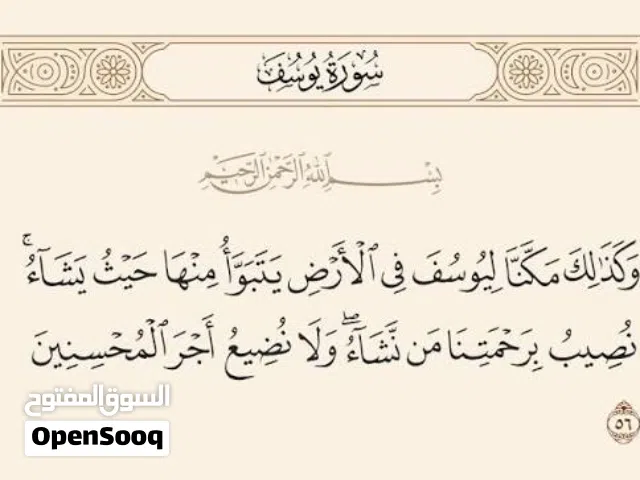 سُورَةُ يُوسُفَ
بِسْمِ ٱللَّهِ ٱلرَّحْمَٰنِ ٱلرَّحِيمِ
وَكَذَٰلِكَ مَكَّنَّا لِيُوسُفَ فِى ٱلْأَرْضِ يَتَبَوَّأُ مِنْهَا حَيْثُ يَشَآءُ ۚ
نُصِيبُ بِرَحْمَتِنَا مَن نَّشَآءُ ۖ وَلَا نُضِيعُ أَجْرَ ٱلْمُحْسِنِينَ
٥٦
السوق المفتوح
OpenSooq